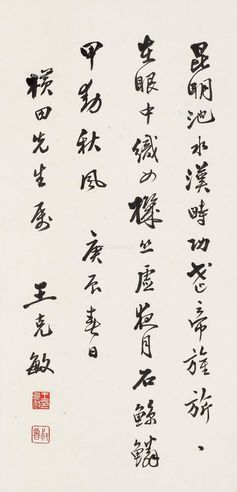 昆明池水漢時功武帝旌旂
在眼中織女機絲虛夜月石鯨鱗
甲動秋風 庚辰春日
橫田先生屬 王克敏